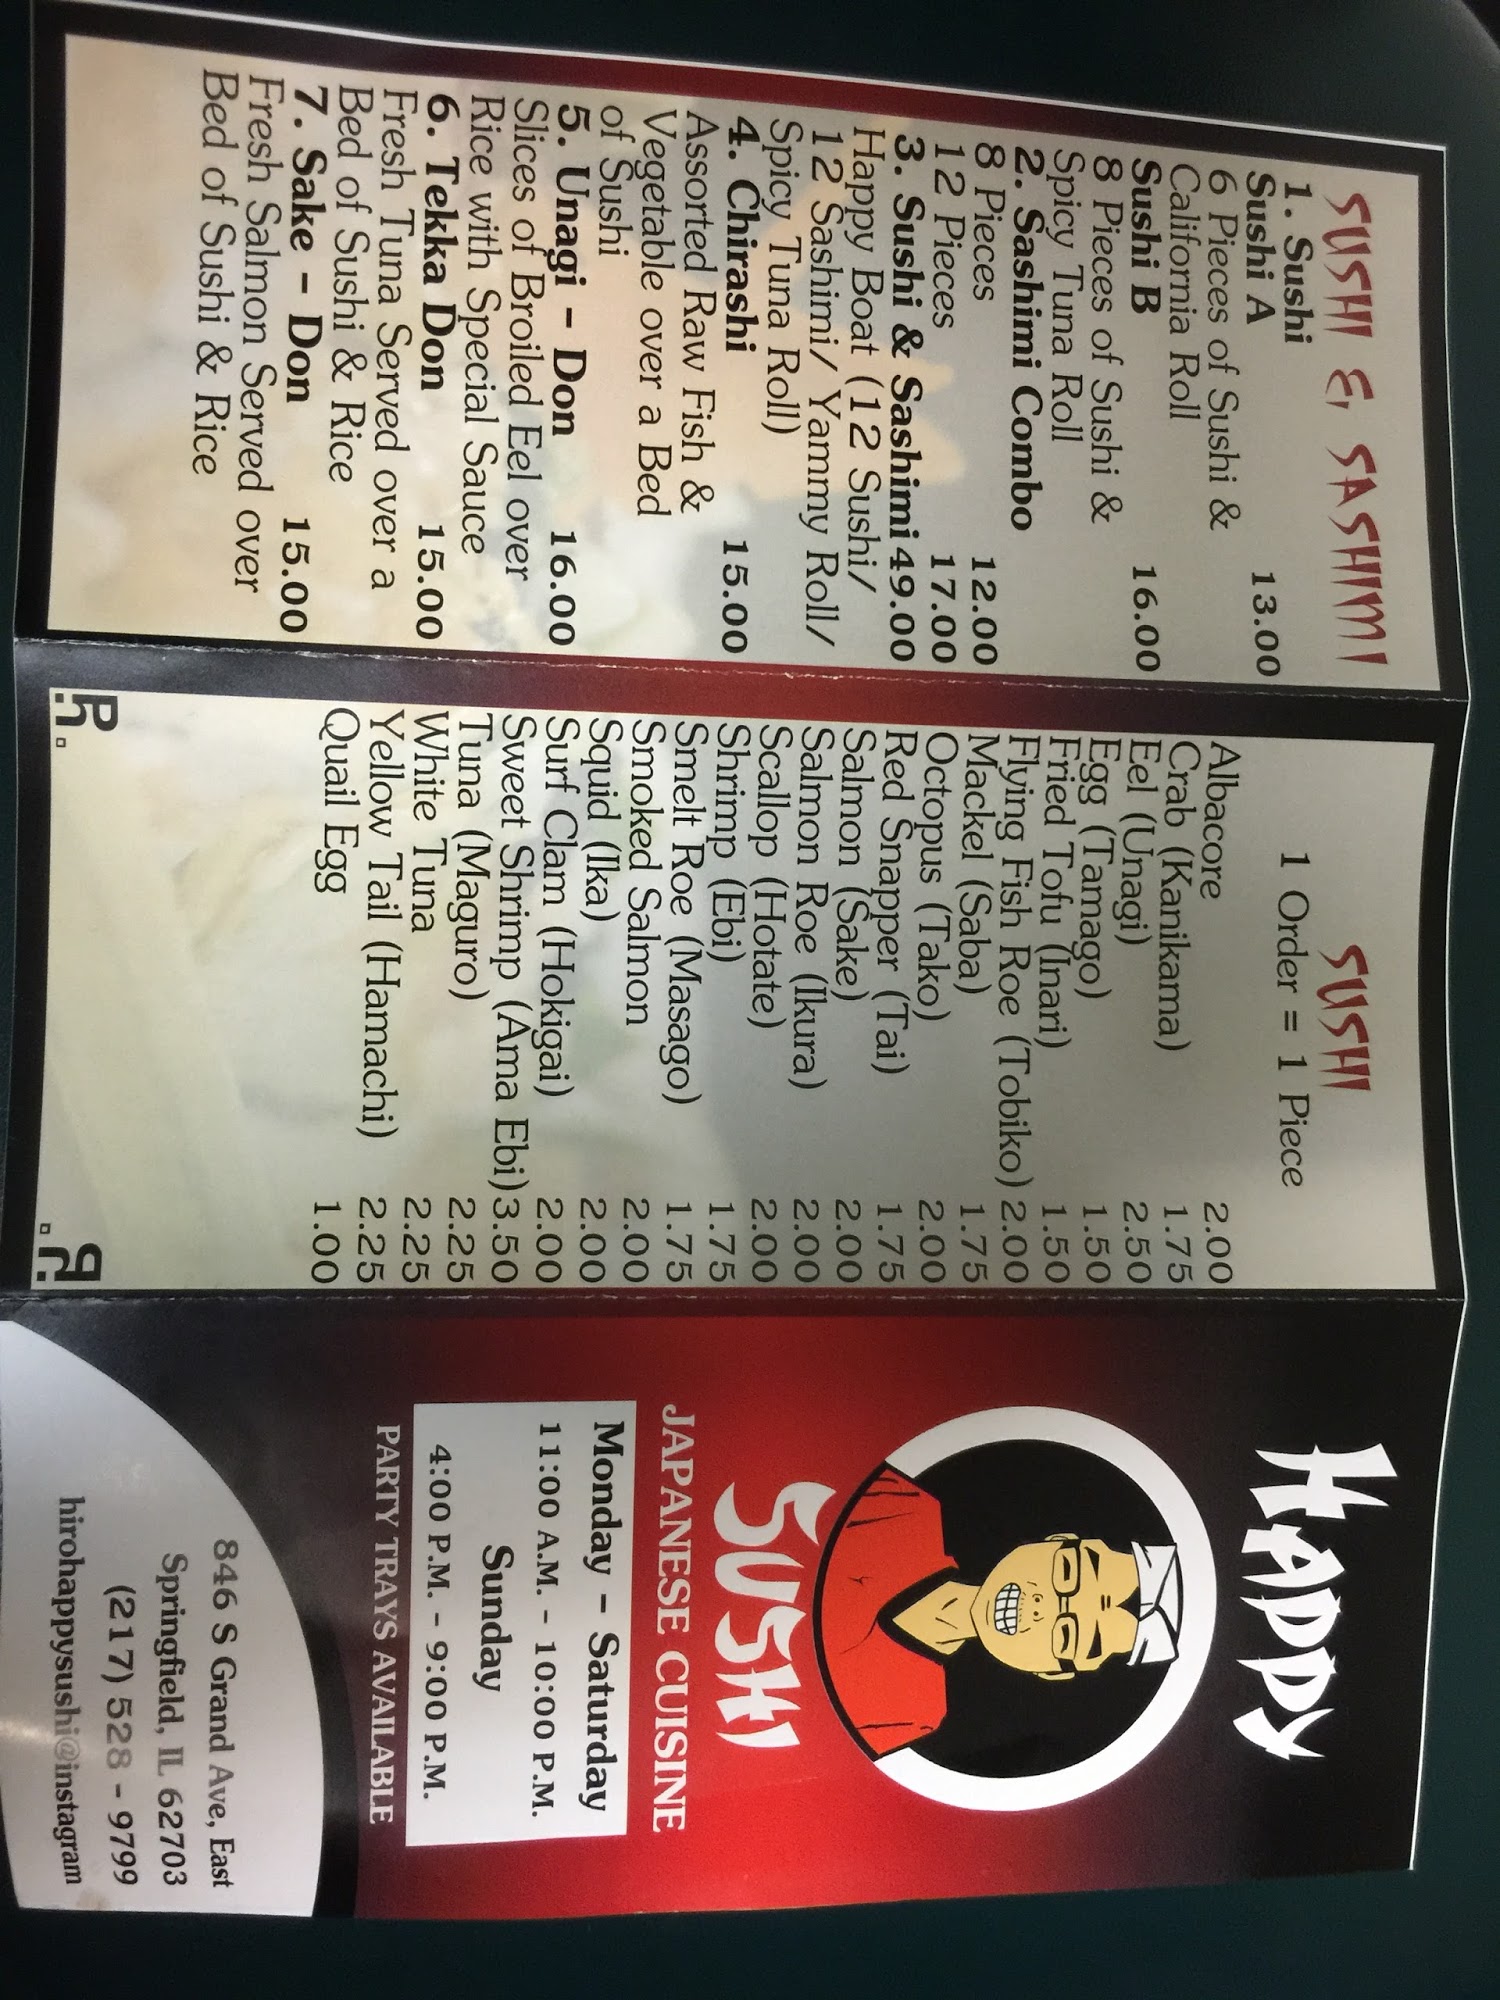 SUSHI & SASHIMI
1. Sushi
Sushi A 13.00
6 Pieces of Sushi &
California Roll
Sushi B 16.00
8 Pieces of Sushi &
Spicy Tuna Roll
2. Sashimi Combo
8 Pieces 12.00
12 Pieces 17.00
3. Sushi & Sashimi 49.00
Happy Boat (12 Sushi/
12 Sashimi/ Yammy Roll/
Spicy Tuna Roll)
4. Chirashi 15.00
Assorted Raw Fish &
Vegetable over a Bed
of Sushi
5. Unagi - Don 16.00
Slices of Broiled Eel over
Rice with Special Sauce
6. Tekka Don 15.00
Fresh Tuna Served over a
Bed of Sushi & Rice
7. Sake - Don 15.00
Fresh Salmon Served over
Bed of Sushi & Rice
SUSHI
1 Order = 1 Piece
Albacore 2.00
Crab (Kanikama) 1.75
Eel (Unagi) 2.50
Egg (Tamago) 1.50
Fried Tofu (Inari) 1.50
Flying Fish Roe (Tobiko) 2.00
Mackel (Saba) 1.75
Octopus (Tako) 2.00
Red Snapper (Tai) 1.75
Salmon (Sake) 2.00
Salmon Roe (Ikura) 2.00
Scallop (Hotate) 2.00
Shrimp (Ebi) 1.75
Smelt Roe (Masago) 1.75
Smoked Salmon 2.00
Squid (Ika) 2.00
Surf Clam (Hokigai) 2.00
Sweet Shrimp (Ama Ebi) 3.50
Tuna (Maguro) 2.25
White Tuna 2.25
Yellow Tail (Hamachi) 2.25
Quail Egg 1.00
HAPPY
SUSHI
JAPANESE CUISINE
Monday - Saturday
11:00 A.M. - 10:00 P.M.
Sunday
4:00 P.M. - 9:00 P.M.
PARTY TRAYS AVAILABLE
846 S Grand Ave, East
Springfield, IL 62703
(217) 528 - 9799
hirohappysushi@instagram